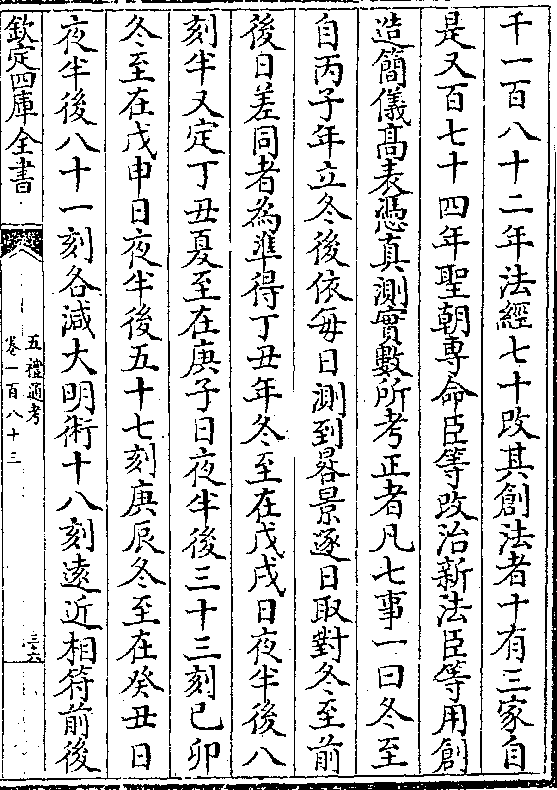 千一百八十二年法經七十改其創法者十有三家自
是又百七十四年聖朝專命臣等改治新法臣等用創
造簡儀髙表憑真測實數所考正者凡七事一曰冬至
自丙子年立冬後依每日測到晷景逐日取對冬至前
後日差同者為準得丁丑年冬至在戊戌日夜半後八
刻半又定丁丑夏至在庚子日夜半後三十三刻己卯
冬至在戊申日夜半後五十七刻庚辰冬至在癸丑日
夜半後八十一刻各減大明術十八刻遠近相符前後
欽定四庫全書
五禮通考
卷一百八十三
三六